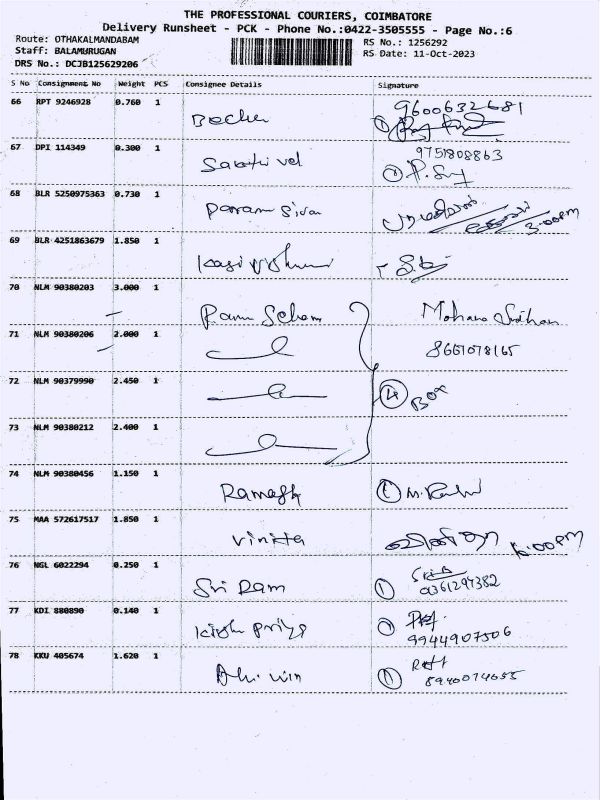 THE PROFESSIONAL COURIERS, COIMBATORE
Delivery Runsheet - PCK - Phone No.:0422-3505555 - Page No.:6
Route: OTHAKALMANDABAM
RS No.: 1256292
Staff: BALAMURUGAN
RS Date: 11-Oct-2023
DRS No.: DCJB125629206
S No Consignment No Weight PCS Consignee Details Signature
66 RPT 9246928 0.760 1 9600632681
67 DPI 114349 0.300 1 Sakthi vel 9751808863
68 BLR 5250975363 0.730 1 Param Siva 3:00PM
69 BLR 4251863679 1.850 1
70 NLM 90380203 3.000 1 Mohana
71 NLM 90380206 2.000 1 8661078165
72 NLM 90379990 2.450 1 4 Box
73 NLM 90380212 2.400 1
74 NLM 90380456 1.150 1 Ramesh 1
75 MAA 572617517 1.850 1 Vinitta 6:00PM
76 NGL 6022294 0.250 1 Sri Ram 1
77 KDI 880890 0.140 1 priya 9944907506
78 KKU 405674 1.620 1 1